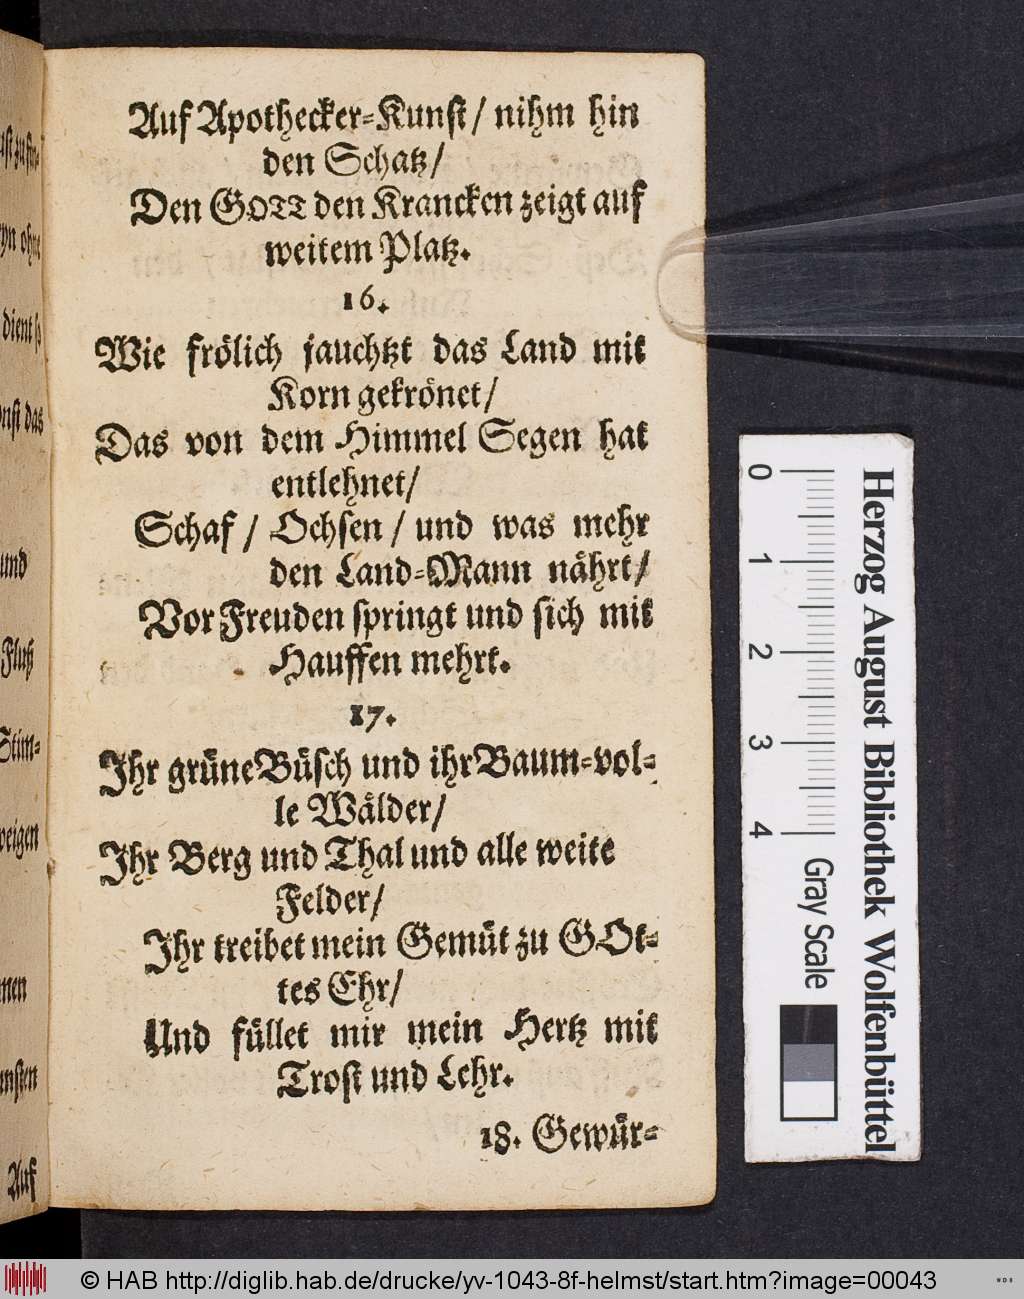 Auf Apothecker-Kunst / nihm hin
den Schatz /
Den GOTT den Krancken zeigt auf
weitem Platz.
16.
Wie frölich jauchtzt das Land mit
Korn gekrönet /
Das von dem Himmel Segen hat
entlehnet /
Schaf / Ochsen / und was mehr
den Land-Mann nährt /
Vor Freuden springt und sich mit
Hauffen mehrt.
17.
Ihr grüne Büsch und ihr Baum-vol-
le Wälder /
Ihr Berg und Thal und alle weite
Felder /
Ihr treibet mein Gemüt zu GOt-
tes Ehr /
Und füllet mir mein Hertz mit
Trost und Lehr.
18. Gewür-
ohne
dient so
das
und
Fluß
Stim-
men
Auf
0 1 2 3 4
Gray Scale
Herzog August Bibliothek Wolfenbüttel
© HAB http://diglib.hab.de/drucke/yv-1043-8f-helmst/start.htm?image=00043